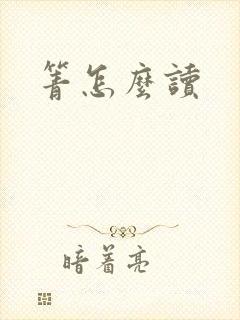 箐怎麼讀
暗着亮